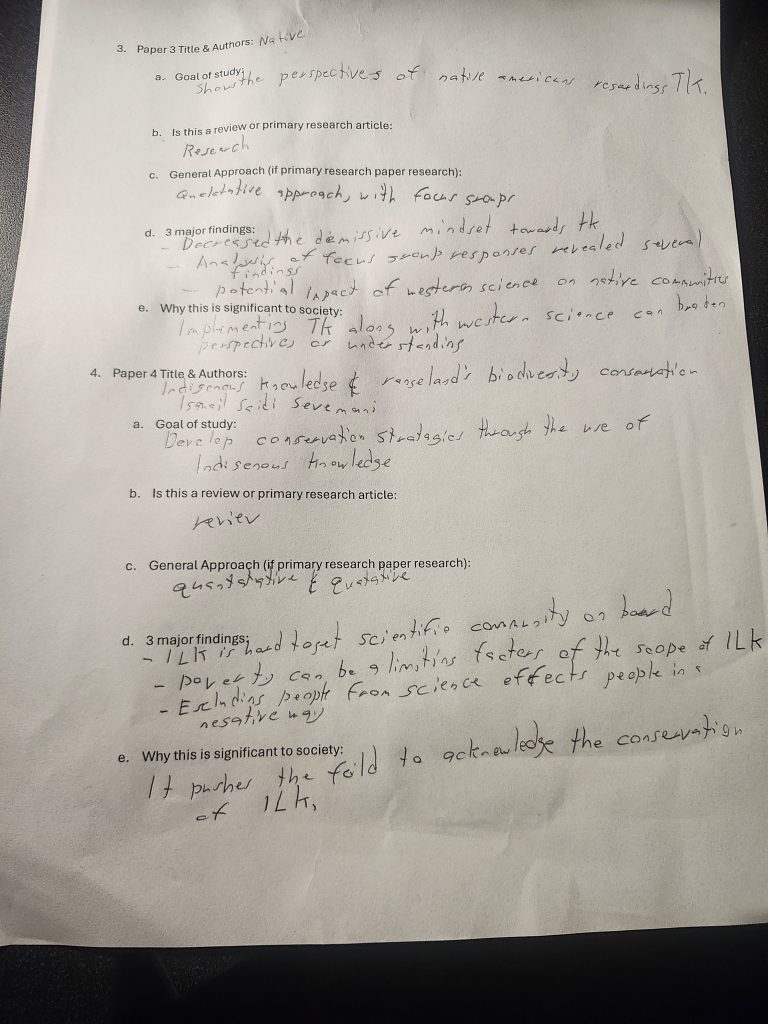 3. Paper 3 Title & Authors: Native
a. Goal of study:
Show the perspectives of native americans regardings TK.
b. Is this a review or primary research article:
Research
c. General Approach (if primary research paper research):
Qualatative approach, with focus groups
d. 3 major findings:
- Decreased the demissive mindset towards tk
- Analysis of focus group responses revealed several
findings
- potential Impact of western science on native communities
e. Why this is significant to society:
Implementing TK along with western science can broaden
perspectives or understanding
4. Paper 4 Title & Authors:
Indigenous knowledge & rangeland's biodiversity conservation
Ismail Saidi Sevemani
a. Goal of study:
Develop conservation stratagies through the use of
Indigenous knowledge
b. Is this a review or primary research article:
review
c. General Approach (if primary research paper research):
quantatative & quatative
d. 3 major findings:
- ILK is hard to get scientific community on board
- poverty can be a limiting factors of the scope of ILK
- Excluding people from science effects people in a
negative way
e. Why this is significant to society:
It pushes the feild to acknowledge the conservation
of ILK.